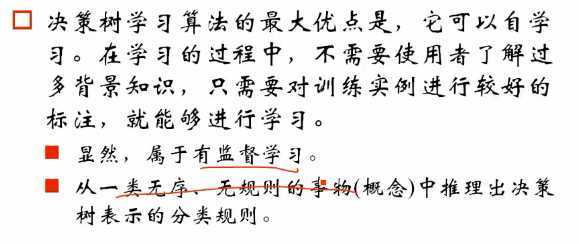 决策树学习算法的最大优点是，它可以自学
习。在学习的过程中，不需要使用者了解过
多背景知识，只需要对训练实例进行较好的
标注，就能够进行学习。
显然，属于有监督学习。
从一类无序、无规则的事物(概念)中推理出决策
树表示的分类规则。